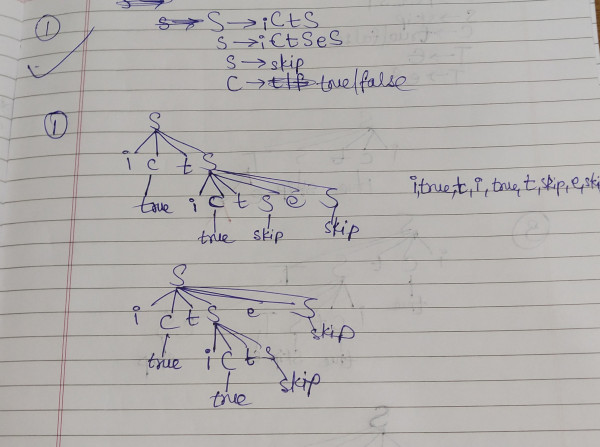 ① S → iCtS
S → iCtSeS
S → skip
C → true/false
① S
i C t S
true i C t S e S
true skip skip
i, true, t, i, true, t, skip, e, ski
S
i C t S e S
true i C t S skip
true skip